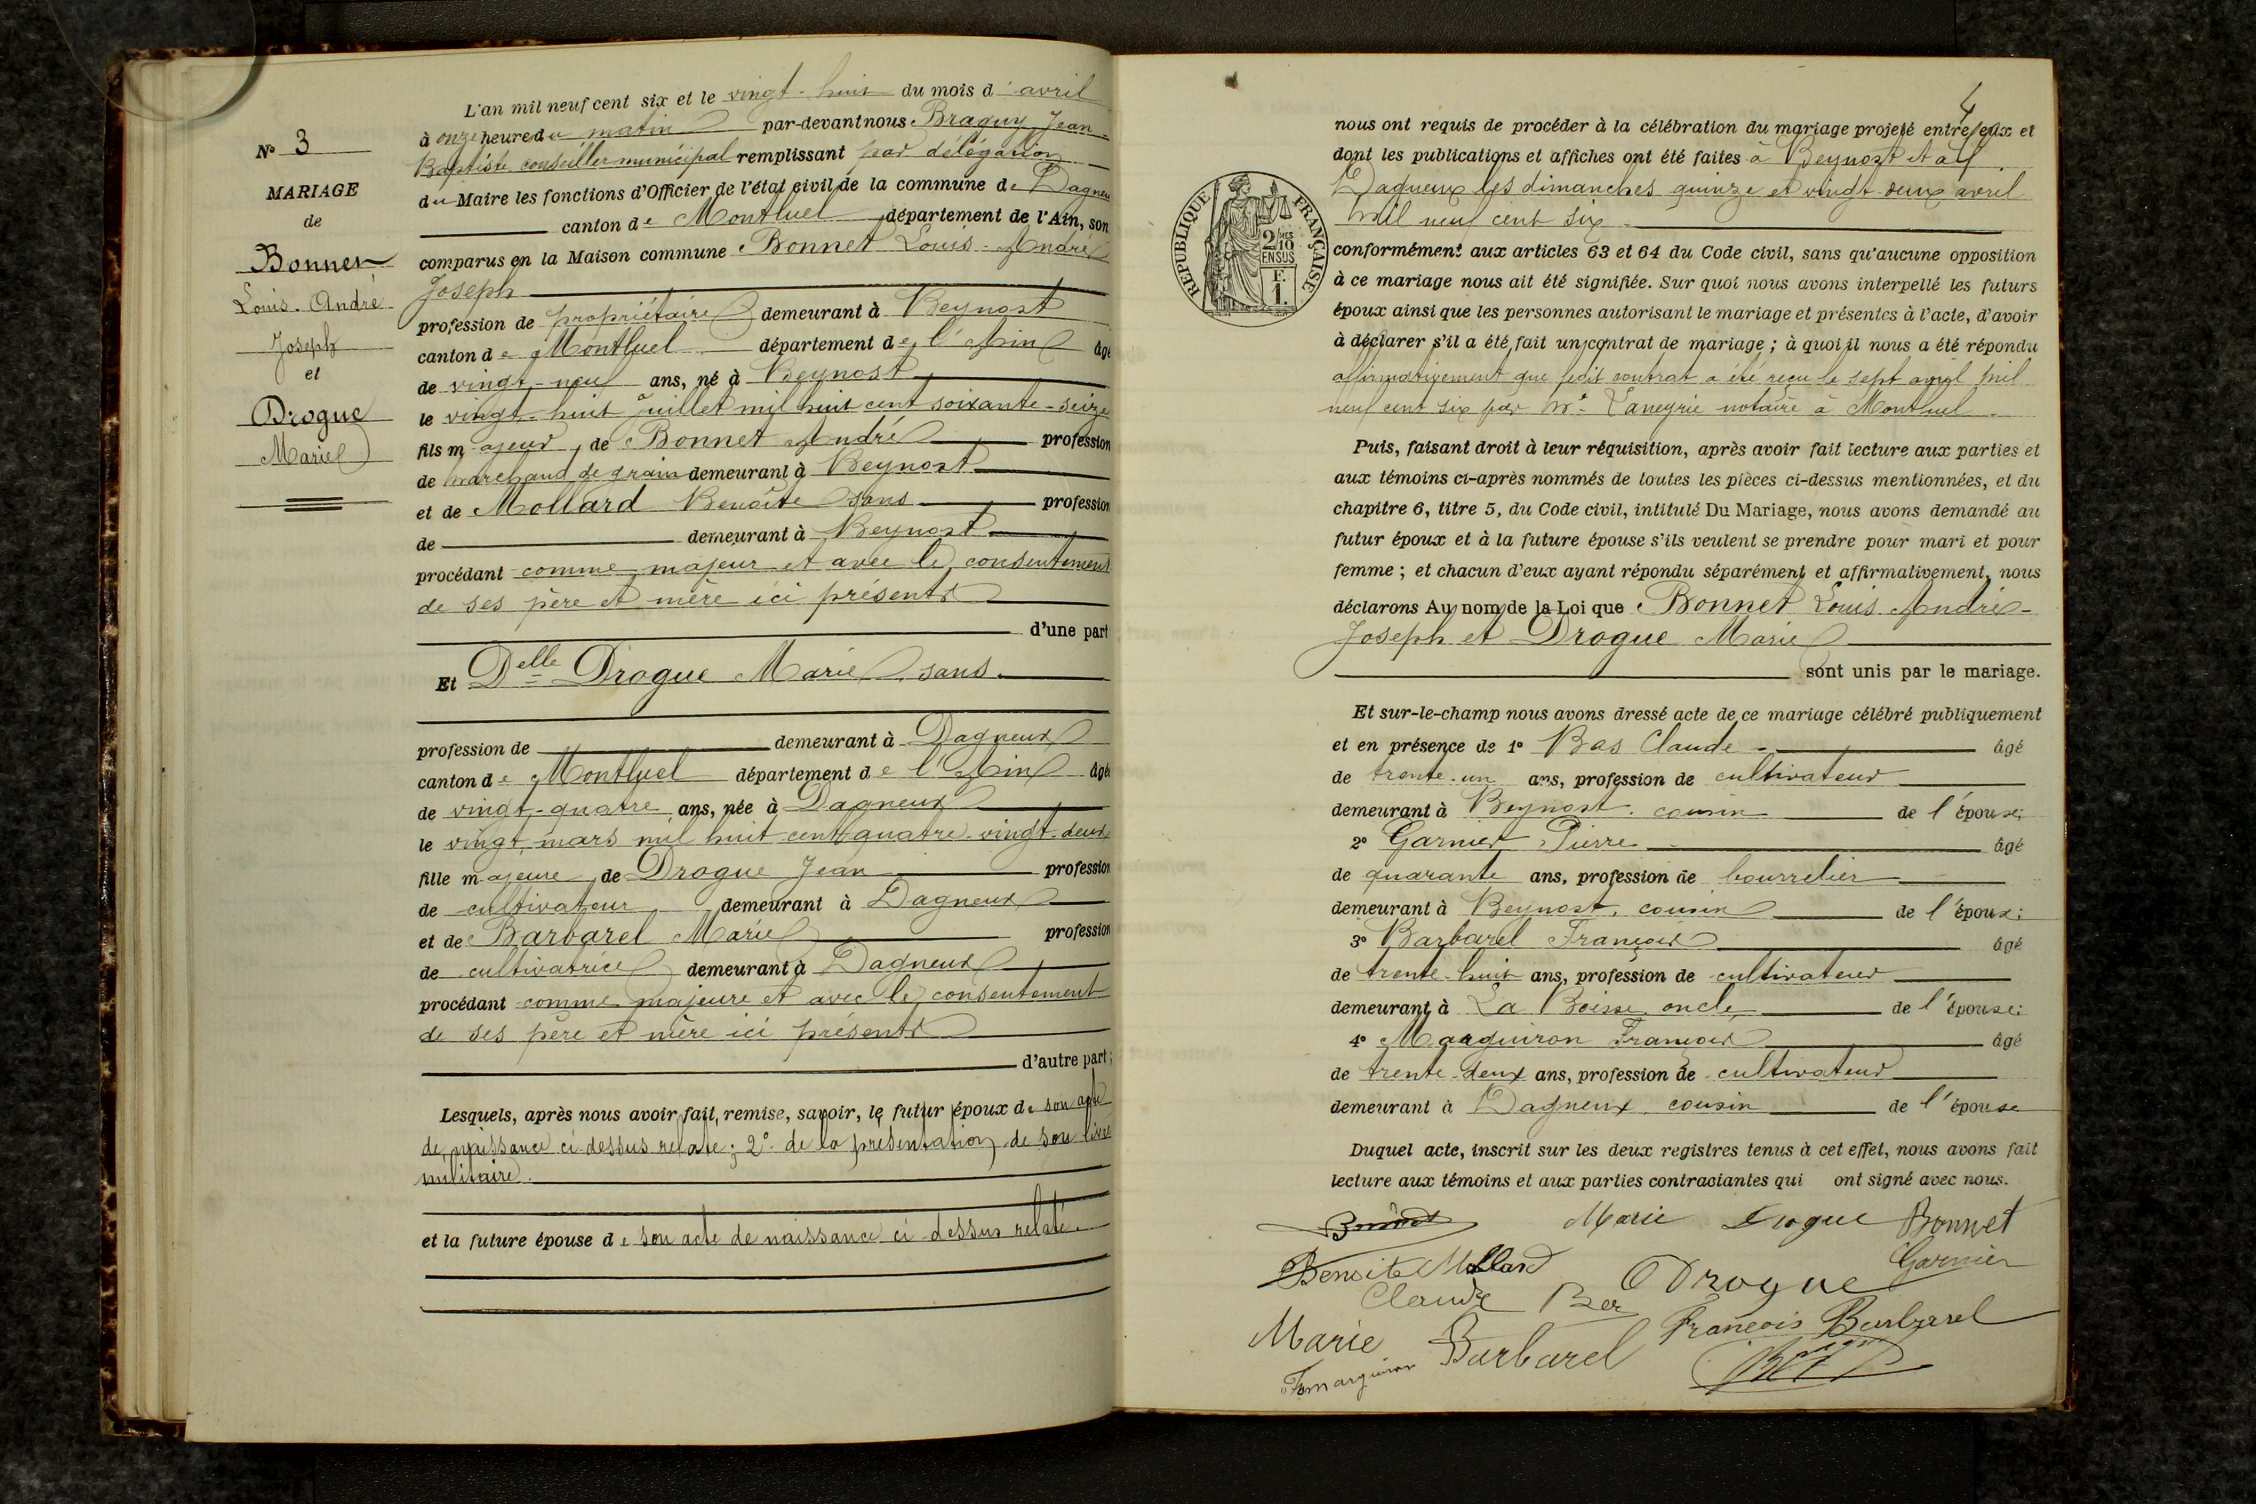 N° 3
MARIAGE
de
Bonnet
Louis. André
Joseph
et
Drogue
Marie
L'an mil neuf cent six et le vingt-huit du mois d'avril
à onze heure du matin par-devant nous Braguy Jean-
Baptiste conseiller municipal remplissant par délégation
du Maire les fonctions d'Officier de l'état civil de la commune de Dagneux
canton de Montluel département de l'Ain, son
comparus en la Maison commune Bonnet Louis-André
Joseph
profession de propriétaire demeurant à Beynost
canton de Montluel département de l'Ain âgé
de vingt-neuf ans, né à Beynost
le vingt-huit Juillet mil huit cent soixante-seize
fils majeur de Bonnet André profession
de marchand de grain demeurant à Beynost
et de Mollard Benoîte sans profession
de demeurant à Beynost
procédant comme majeur et avec le consentement
de ses père et mère ici présents
d'une part
Et Delle Drogue Marie sans
profession de demeurant à Dagneux
canton de Montluel département de l'Ain âgée
de vingt-quatre ans, née à Dagneux
le vingt mars mil huit cent quatre-vingt-deux
fille majeure de Drogue Jean profession
de cultivateur demeurant à Dagneux
et de Barbarel Marie profession
de cultivatrice demeurant à Dagneux
procédant comme majeure et avec le consentement
de ses père et mère ici présents
d'autre part;
Lesquels, après nous avoir fait, remise, savoir, le futur époux de son acte
de naissance ci-dessus relaté; 2° de la présentation de son livret
militaire.
et la future épouse de son acte de naissance ci-dessus relaté.
4
RÉPUBLIQUE FRANÇAISE
2/10 MES
EN SUS
F.
1.
nous ont requis de procéder à la célébration du mariage projeté entre eux et
dont les publications et affiches ont été faites à Beynost et à
Dagneux les dimanches quinze et vingt-deux avril
mil neuf cent six
conformément aux articles 63 et 64 du Code civil, sans qu'aucune opposition
à ce mariage nous ait été signifiée. Sur quoi nous avons interpellé les futurs
époux ainsi que les personnes autorisant le mariage et présentes à l'acte, d'avoir
à déclarer s'il a été fait un contrat de mariage; à quoi il nous a été répondu
affirmativement que ledit contrat a été reçu le sept avril mil
neuf cent six par Me Laneyrie notaire à Montluel.
Puis, faisant droit à leur réquisition, après avoir fait lecture aux parties et
aux témoins ci-après nommés de toutes les pièces ci-dessus mentionnées, et du
chapitre 6, titre 5, du Code civil, intitulé Du Mariage, nous avons demandé au
futur époux et à la future épouse s'ils veulent se prendre pour mari et pour
femme; et chacun d'eux ayant répondu séparément et affirmativement, nous
déclarons Au nom de la Loi que Bonnet Louis André-
Joseph et Drogue Marie
sont unis par le mariage.
Et sur-le-champ nous avons dressé acte de ce mariage célébré publiquement
et en présence de 1° Bas Claude âgé
de trente-un ans, profession de cultivateur
demeurant à Beynost. cousin de l'épouse;
2° Garnier Pierre âgé
de quarante ans, profession de bourrelier
demeurant à Beynost, cousin de l'époux;
3° Barbarel François âgé
de trente-huit ans, profession de cultivateur
demeurant à La Boisse oncle de l'épouse;
4° Marguiron François âgé
de trente-deux ans, profession de cultivateur
demeurant à Dagneux cousin de l'épouse
Duquel acte, inscrit sur les deux registres tenus à cet effet, nous avons fait
lecture aux témoins et aux parties contractantes qui ont signé avec nous.
Bonnet Marie Drogue Bonnet
Benoite Mollard Drogue Garnier
Claude
Marie Barbarel François Barbarel
F marguiron